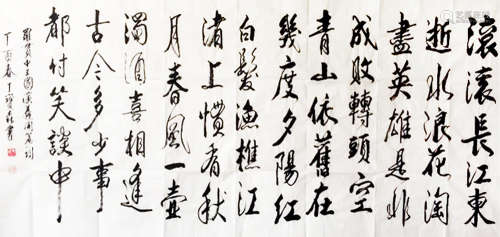 滚滚長江東
逝水浪花淘
盡英雄是非
成敗轉頭空
青山依舊在
幾度夕陽紅
白髮漁樵江
渚上慣看秋
月春風一壺
濁酒喜相逢
古今多少事
都付笑談中
羅貫中三國演義開篇詞
丁酉春丁